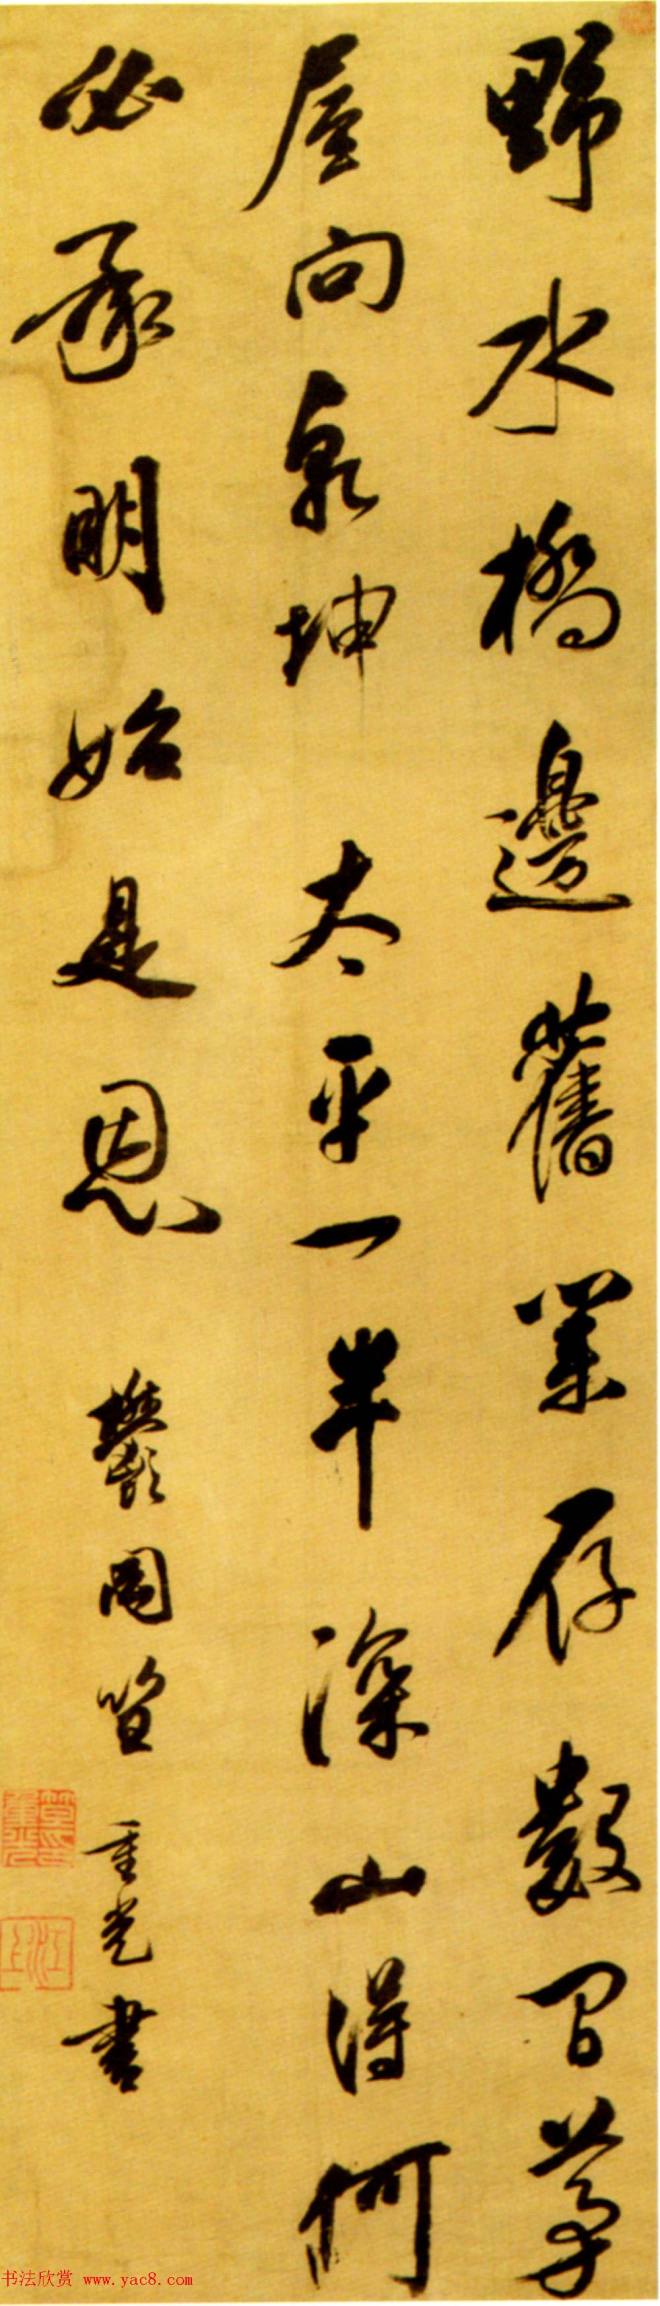 野水橋邊舊業存數間茅
屋向乾坤太平一半深山得何
必承明始是恩 鬱岡笪重光書
江上
书法欣赏 www.yac8.com